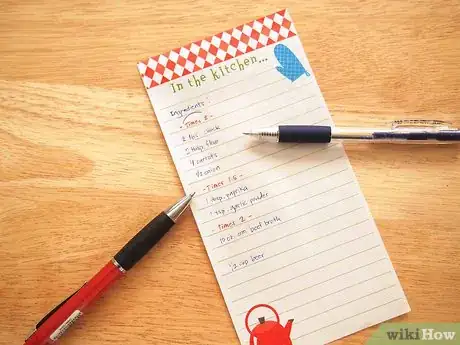 In the kitchen...
Ingredients:
- Times 3 -
2 lbs. chuck
flour
4 carrots
1/2 onion
- Times 1.5 -
1 tsp. paprika
1 tsp. garlic powder
- Times 2 -
10 oz. can beef broth
1/2 cup beer
wikiHow